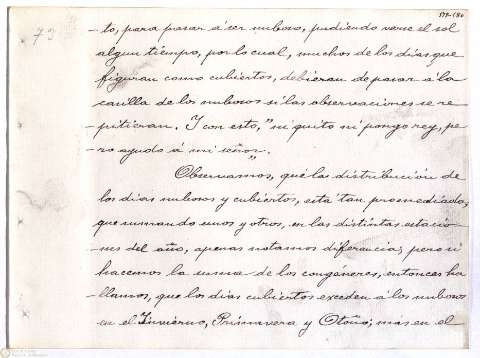 579-(80
73
- to, para pasar á ser nuboso, pudiendo verse el sol
algun tiempo, por lo cual, muchos de los dias que
figuran como cubiertos, debieran de pasar á la
casilla de los nubosos si las observaciones se re
- pitieran. I con esto, "ni quito ni pongo rey, pe
- ro ayudo á mi señor".
Observamos, que la distribución de
los dias nubosos y cubiertos, está tan promediada,
que sumando unos y otros, en las distintas estacio
- nes del año, apenas notamos diferencia; pero si
hacemos la suma de los congéneres, entonces ha
- llamos, que los dias cubiertos exceden á los nubosos
en el Invierno, Primavera y Otoño; más en el